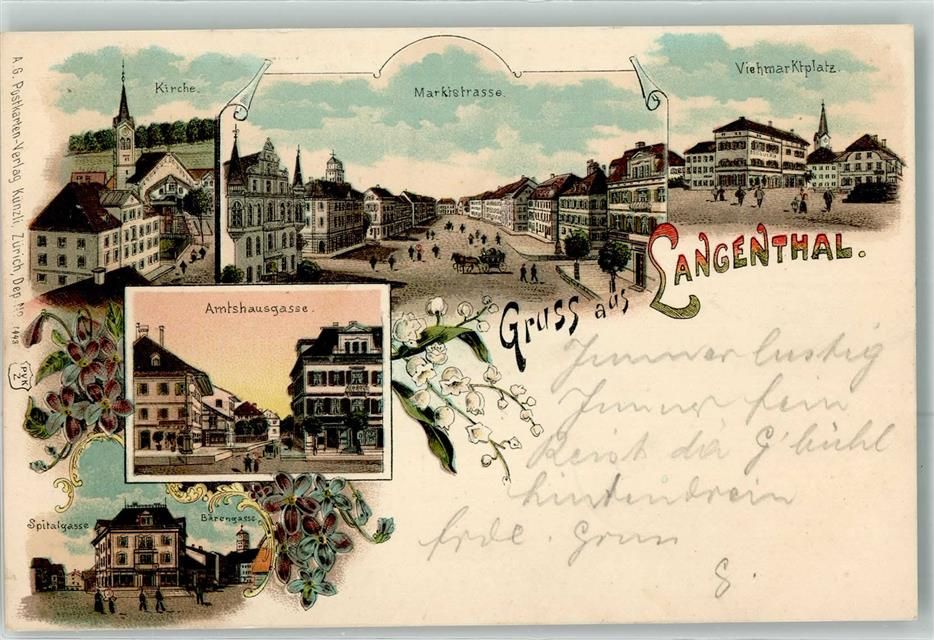 Kirche.
Marktstrasse.
Viehmarktplatz.
Gruss aus LANGENTHAL.
Amtshausgasse.
Spitalgasse
Bärengasse.
A.G. Postkarten-Verlag Künzli, Zürich, Dep. No. 1493
PVK
Z
Immer lustig
Immer fein
Reist da G'bühl
hintendrein
frdl. Gruss
G.